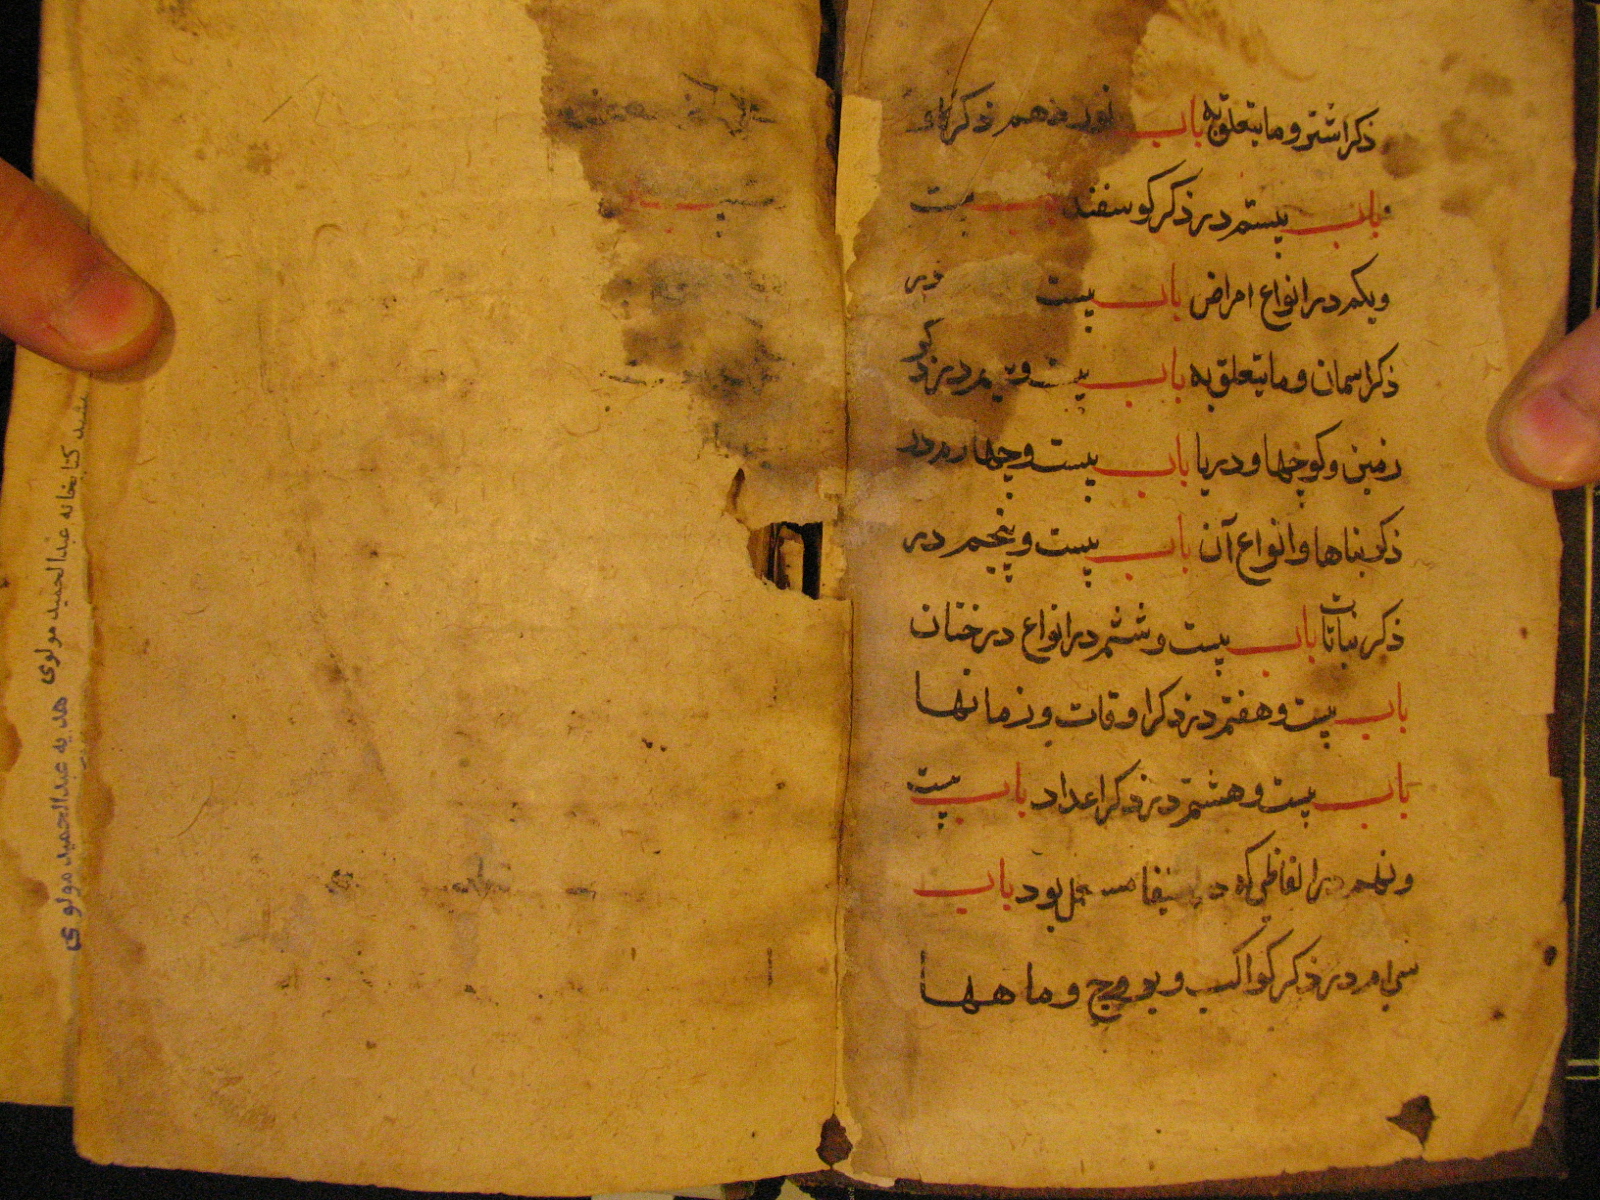 ذکر اشتر و ما یتعلق به باب نوزدهم ذکر گاو
باب بیستم در ذکر گوسفند باب بیست
ویکم در انواع امراض باب بیست
ذکر اسمان و ما یتعلق به باب بیست و سیم در ذکر
زمین و کوچها و دریا باب بیست و چهارم در
ذکر بناها و انواع آن باب بیست و پنجم در
ذکر نباتات باب بیست و ششم در انواع درختان
باب بیست و هفتم در ذکر اوقات و زمانها
باب بیست و هشتم در ذکر اعداد باب بیست
ونهم در الفاظی که مستعمل بود باب
سی ام در ذکر کواکب و بروج و ماهها
هدیه عبدالحمید مولوی
کتابخانه عبدالحمید مولوی